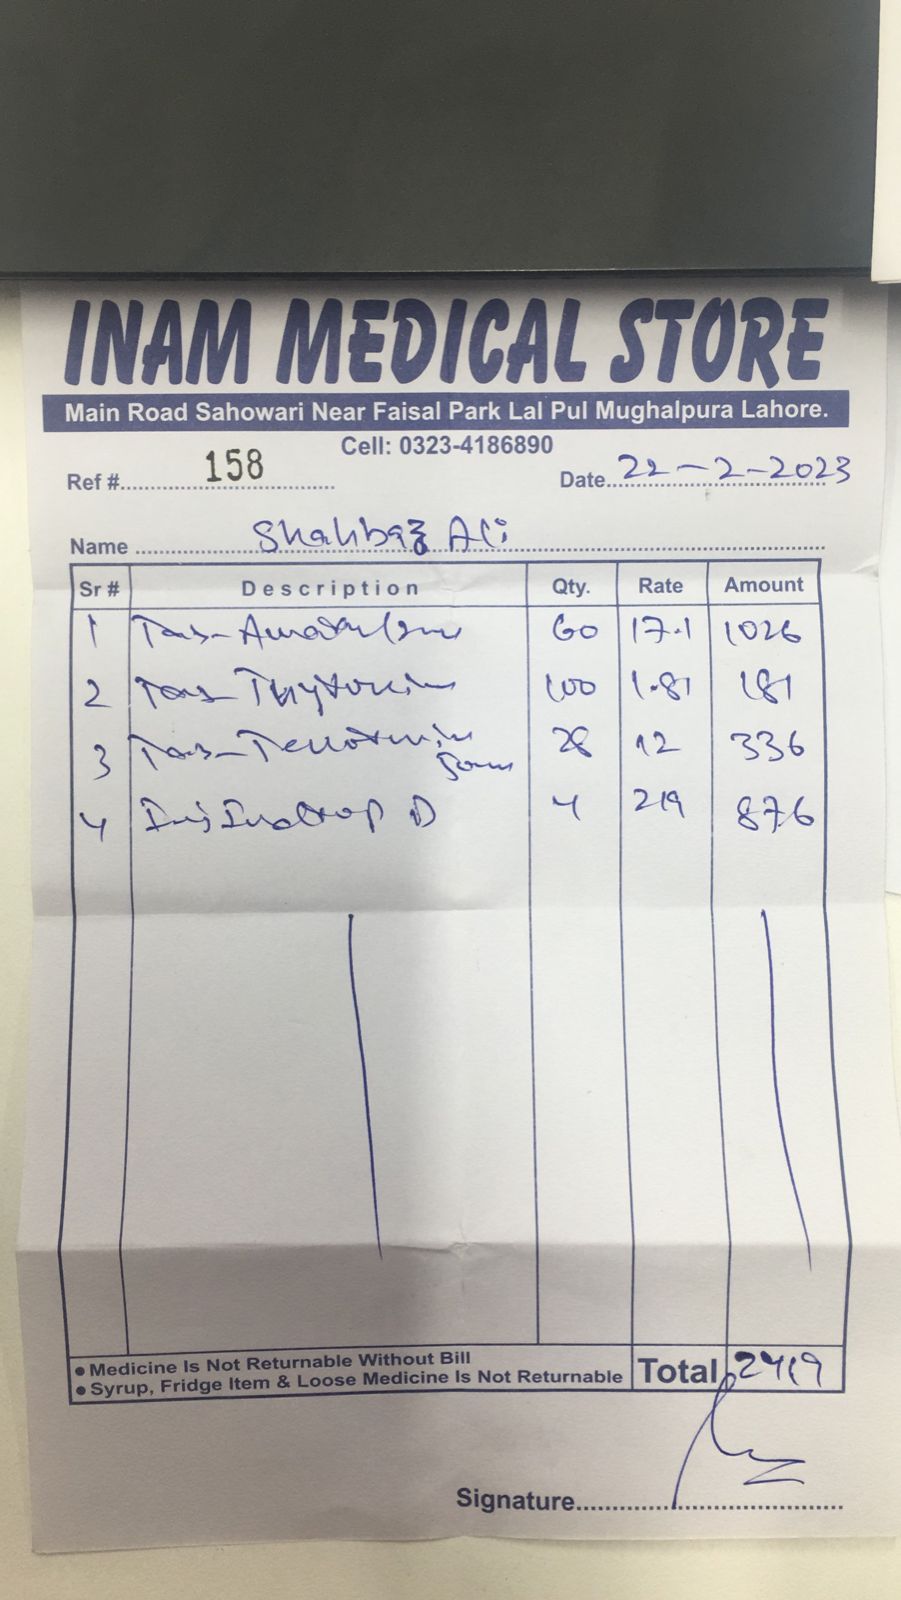 INAM MEDICAL STORE
Main Road Sahowari Near Faisal Park Lal Pul Mughalpura Lahore.
Cell: 0323-4186890
Ref #. 158 Date. 22-2-2023
Name Shahbaz Ali
Sr # Description Qty. Rate Amount
1 Tab- 60 17.1 1026
2 Tab- 100 1.81 181
3 Tab- 28 12 336
4 Inj Indrop D 4 219 876
• Medicine Is Not Returnable Without Bill
• Syrup, Fridge Item & Loose Medicine Is Not Returnable
Total 2419
Signature